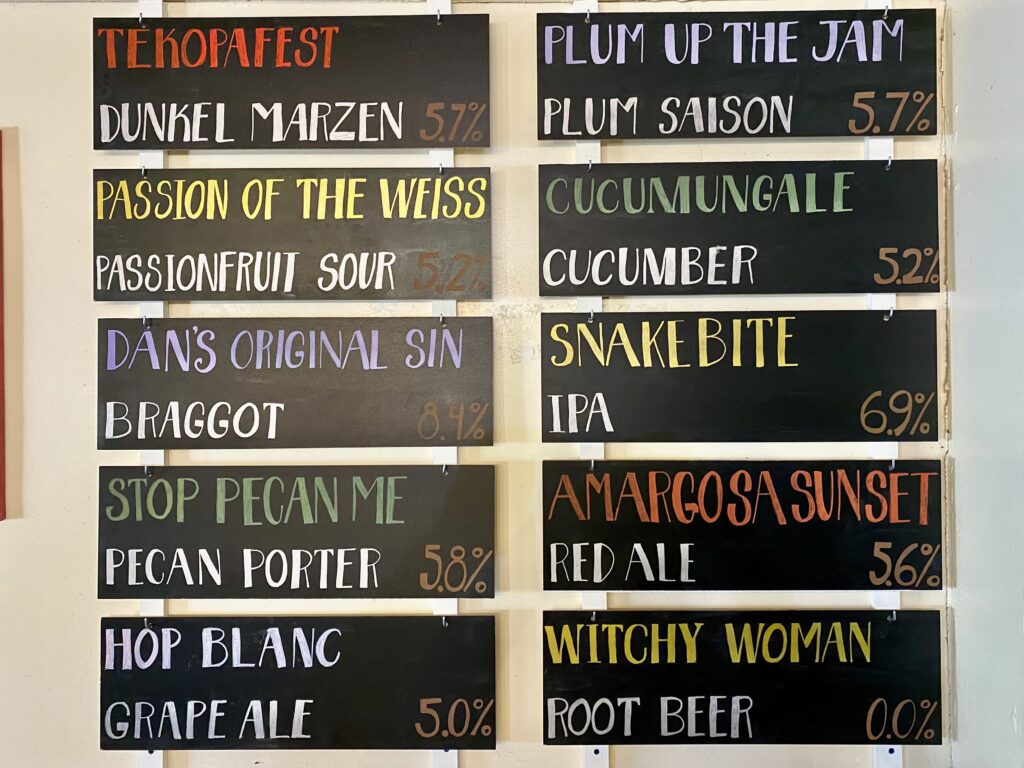 TEKOPAFEST
DUNKEL MARZEN 5.7%
PASSION OF THE WEISS
PASSIONFRUIT SOUR 5.2%
DAN'S ORIGINAL SIN
BRAGGOT 8.4%
STOP PECAN ME
PECAN PORTER 5.8%
HOP BLANC
GRAPE ALE 5.0%
PLUM UP THE JAM
PLUM SAISON 5.7%
CUCUMUNGALE
CUCUMBER 5.2%
SNAKE BITE
IPA 6.9%
AMARGOSA SUNSET
RED ALE 5.6%
WITCHY WOMAN
ROOT BEER 0.0%